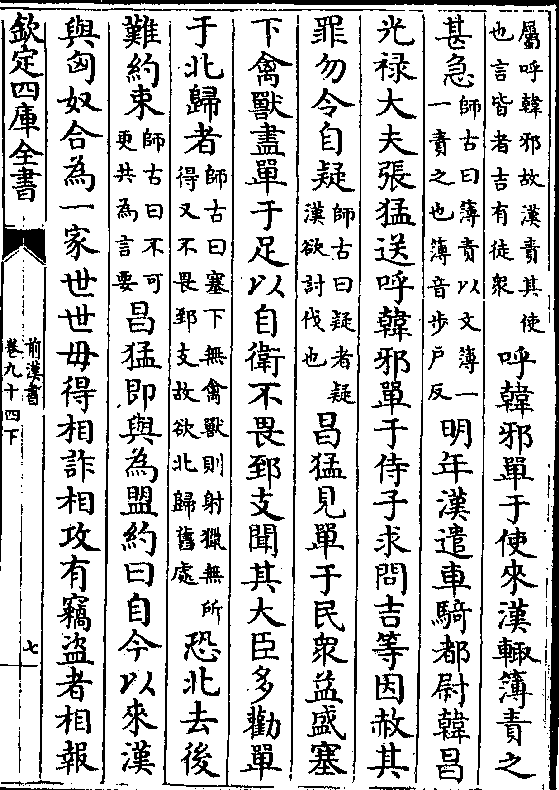 屬呼韓邪故漢責其使
也言皆者吉有徒衆
呼韓邪單于使來漢輙簿責之
甚急
師古曰簿責以文簿一
一責之也簿音步戸反
明年漢遣車騎都尉韓昌
光禄大夫張猛送呼韓邪單于侍子求問吉等因赦其
罪勿令自疑
師古曰疑者疑
漢欲討伐也
昌猛見單于民衆益盛塞
下禽獸盡單于足以自衛不畏郅支聞其大臣多勸單
于北歸者
師古曰塞下無禽獸則射獵無所
得又不畏郅支故欲北歸舊處
恐北去後
難約束
師古曰不可
更共為言要
昌猛即與為盟約曰自今以來漢
與匈奴合為一家世世毋得相詐相攻有竊盗者相報
欽定四庫全書
前漢書
卷九十四下
七